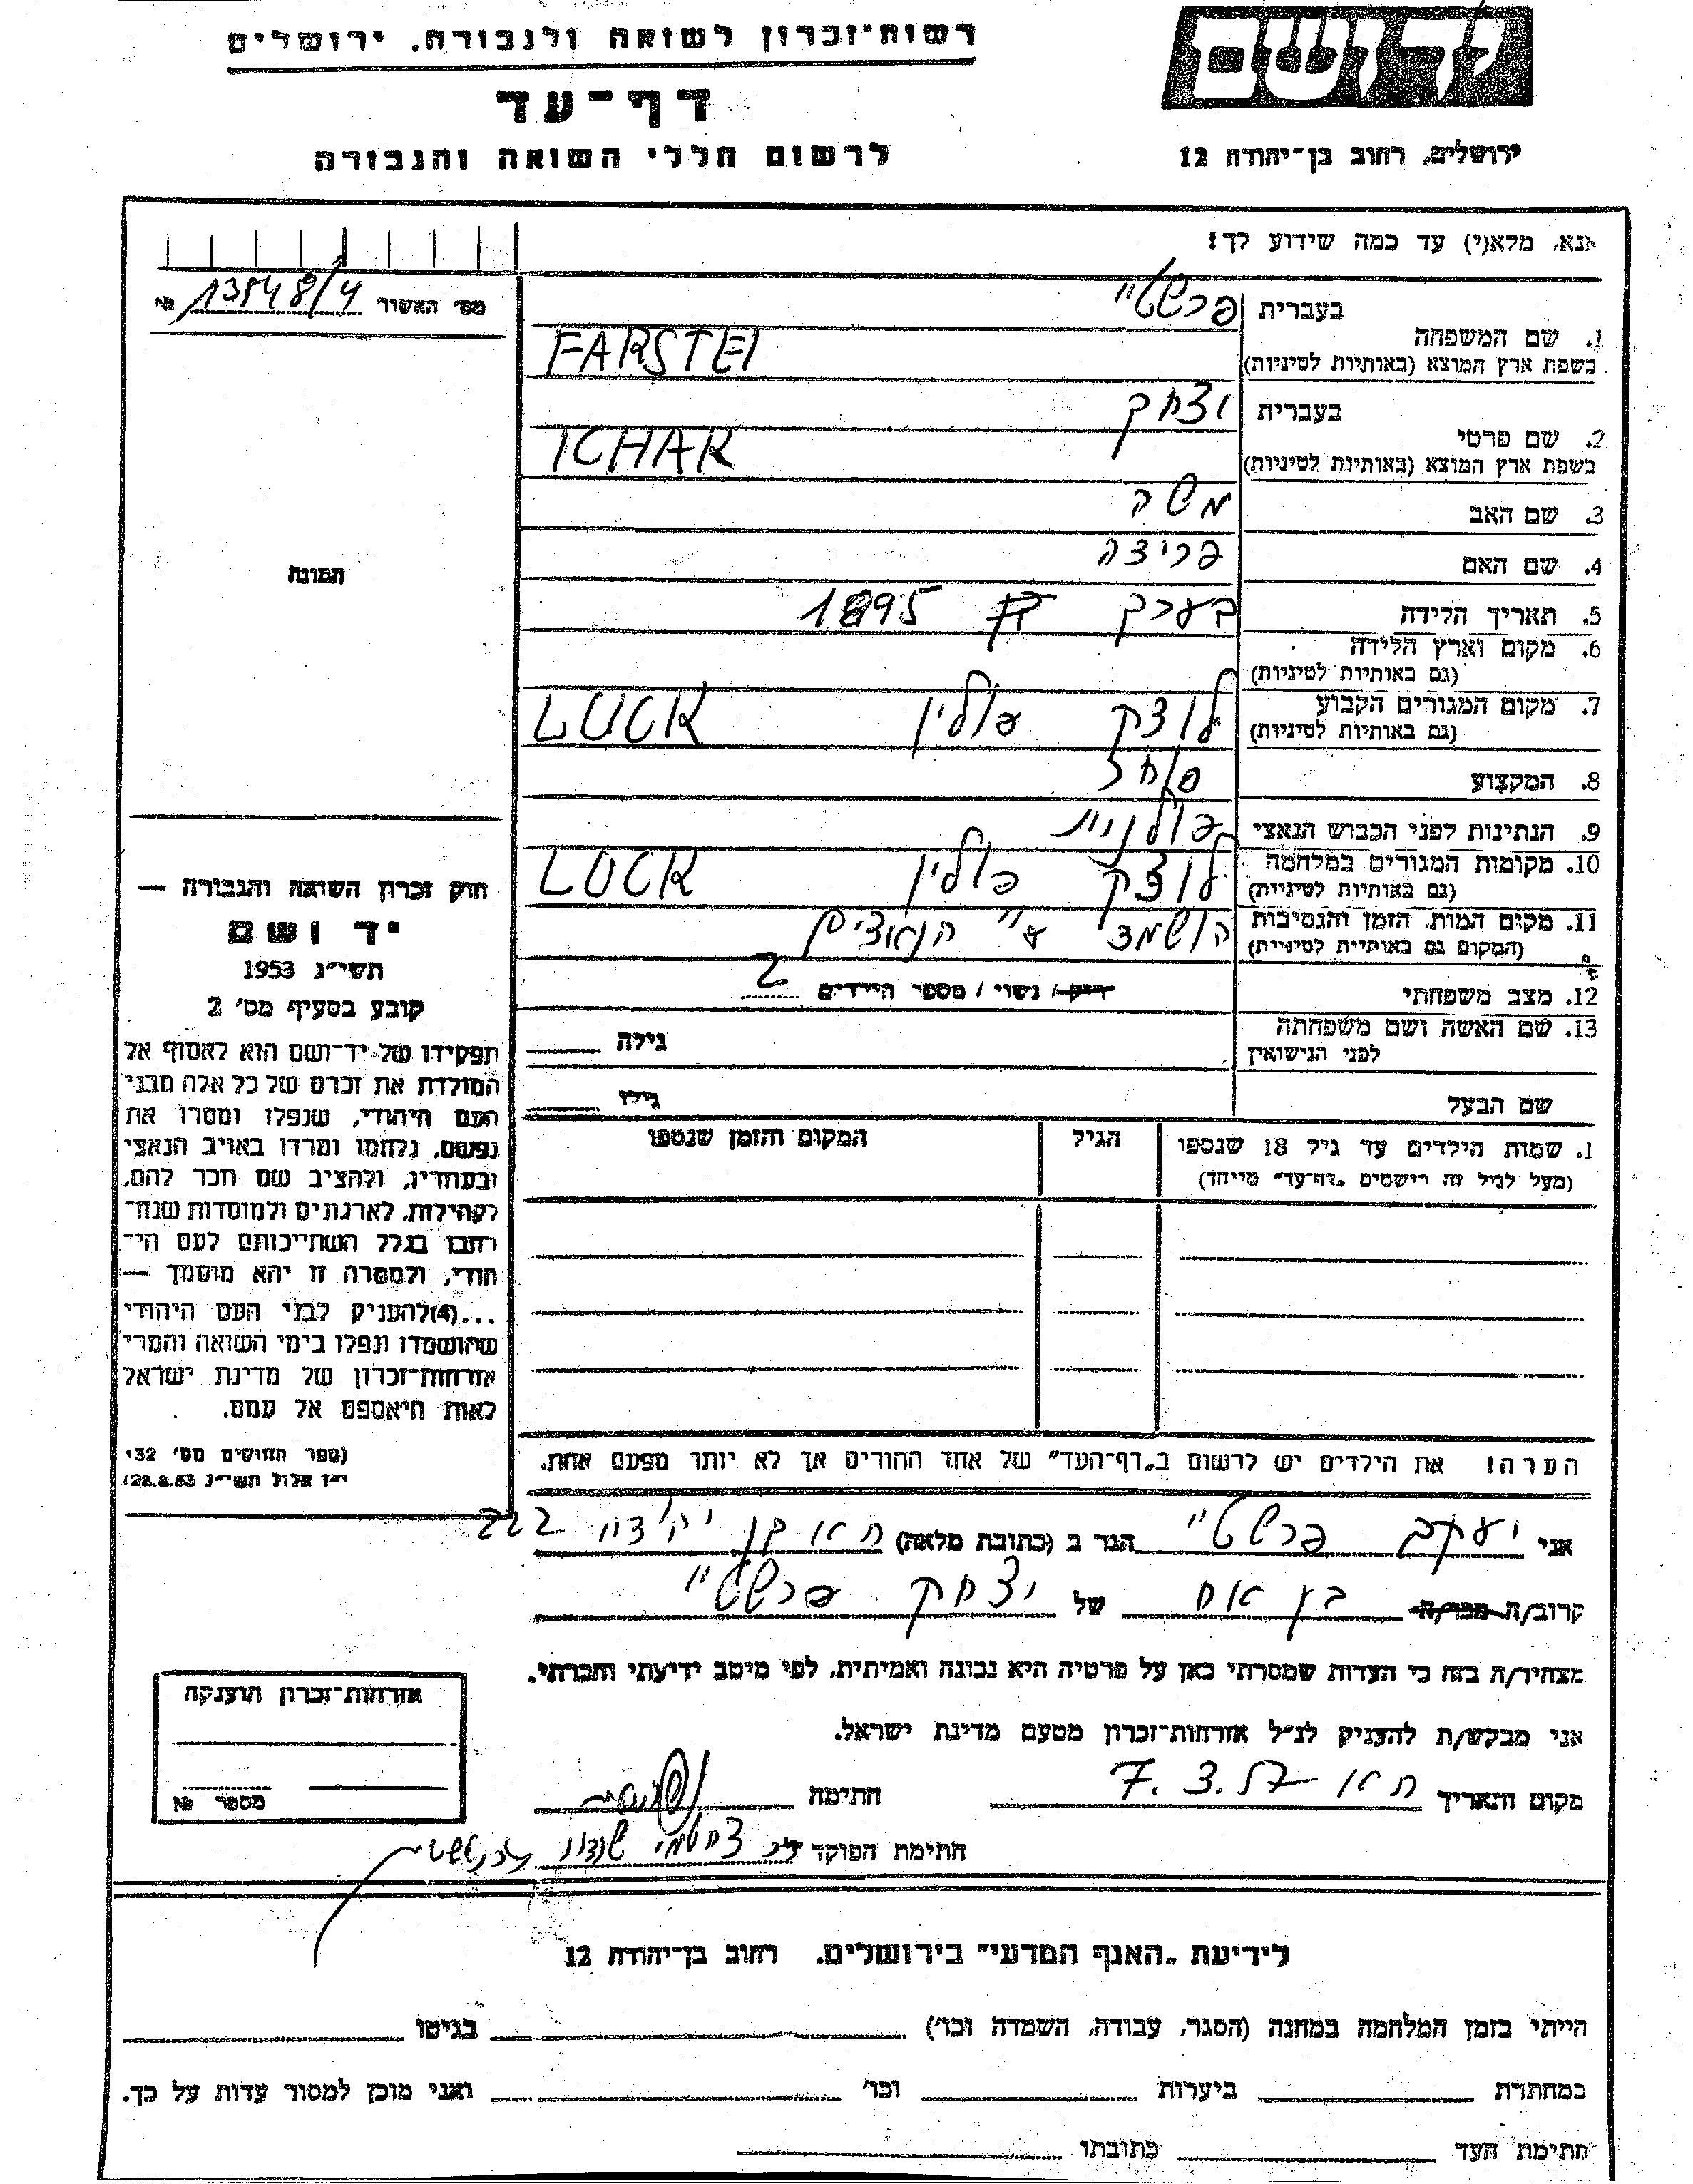 רשות-זכרון לשואה ולגבורה, ירושלים
יד ושם
דף-עד
לרשום חללי השואה והגבורה
ירושלים, רחוב בן-יהודה 12
אנא, מלא(י) עד כמה שידוע לך!
מס׳ האשור № 13848/4
בעברית פרשטיי
1. שם המשפחה
בשפת ארץ המוצא (באותיות לטיניות) FARSTEI
בעברית יצחק
2. שם פרטי
בשפת ארץ המוצא (באותיות לטיניות) ICHAK
3. שם האב משה
4. שם האם פריצה
5. תאריך הלידה בערך 1895
6. מקום וארץ הלידה
(גם באותיות לטיניות)
7. מקום המגורים הקבוע לוצק פולין LUCK
(גם באותיות לטיניות)
8. המקצוע סוחר
9. הנתינות לפני הכבוש הנאצי פולנית
10. מקומות המגורים במלחמה לוצק פולין LUCK
(גם באותיות לטיניית)
11. מקום המות, הזמן והנסיבות הושמד ע״י הנאצים
(המקום גם באותיית לטיניית)
12. מצב משפחתי רוק / נשוי / מספר הילדים 2
13. שם האשה ושם משפחתה גילה
לפני הנישואין
שם הבעל גילו
1. שמות הילדים עד גיל 18 שנספו הגיל המקום והזמן שנספו
(מעל לגיל זה רישמים „דף-עד״ מייחד)
הערה! את הילדים יש לרשום ב„דף-העד״ של אחד ההורים אך לא יותר מפעם אחת.
תמונה
חוק זכרון השואה והגבורה —
יד ושם
תשי״ג 1953
קובע בסעיף מס׳ 2
תפקידו של יד-ושם הוא לאסוף אל
המולדת את זכרם של כל אלה מבני
העם היהודי, שנפלו ומסרו את
נפשם, נלחמו ומרדו באויב הנאצי
ובעוזריו, ולהציב שם וזכר להם,
לקהילות, לארגונים ולמוסדות שנח-
רחבו בגלל השתייכותם לעם הי-
הודי, ולמטרה זו יהא מוסמך —
...(4)להעניק לבני העם היהודי
שהושמדו ונפלו בימי השואה והמרי
אזרחות-זכרון של מדינת ישראל
לאות היאספם אל עמם.
(ספר החוקים מס׳ 132
י״ז אלול תשי״ג 28.8.53)
אני יעקב פרשטיי הגר ב (כתובת מלאה) ת א בן יהודה 222
קרוב/ה מכר/ה בן אח של יצחק פרשטיי
מצהיר/ה בזה כי העדות שמסרתי כאן על פרטיה היא נכונה ואמיתית, לפי מיטב ידיעתי והכרתי.
אני מבקש/ת להעניק לנ״ל אזרחות-זכרון מטעם מדינת ישראל.
מקום והאריך ת א 7.3.57 חתימה
חתימת הפוקד
אזרחות-זכרון הוענקה
מספר №
לידיעת „האגף המדעי״ בירושלים. רחוב בן-יהודה 12
הייתי בזמן המלחמה במחנה (הסגר, עבודה, השמדה וכו׳) בגיטו
במחתרת ביערות וכו׳ ואני מוכן למסור עדות על כך.
חתימת העד כתובתו